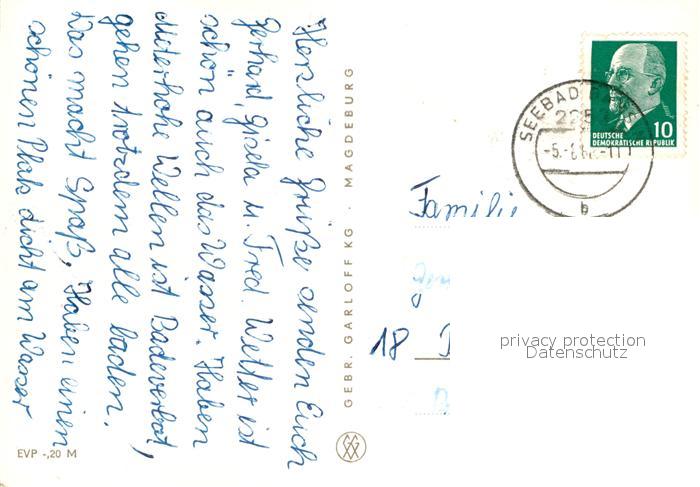 Herzliche Grüße senden Euch
Gerhard, Gisela u. Fred. Wetter ist
schön auch das Wasser. Haben
meterhohe Wellen ist Badeverbot,
gehen trotzdem alle baden.
Das macht Spaß, Haben einen
schönen Platz dicht am Wasser
EVP -,20 M
GEBR. GARLOFF KG · MAGDEBURG
SEEBAD
-5.-8
b
10
DEUTSCHE
DEMOKRATISCHE REPUBLIK
Familie
18
privacy protection
Datenschutz